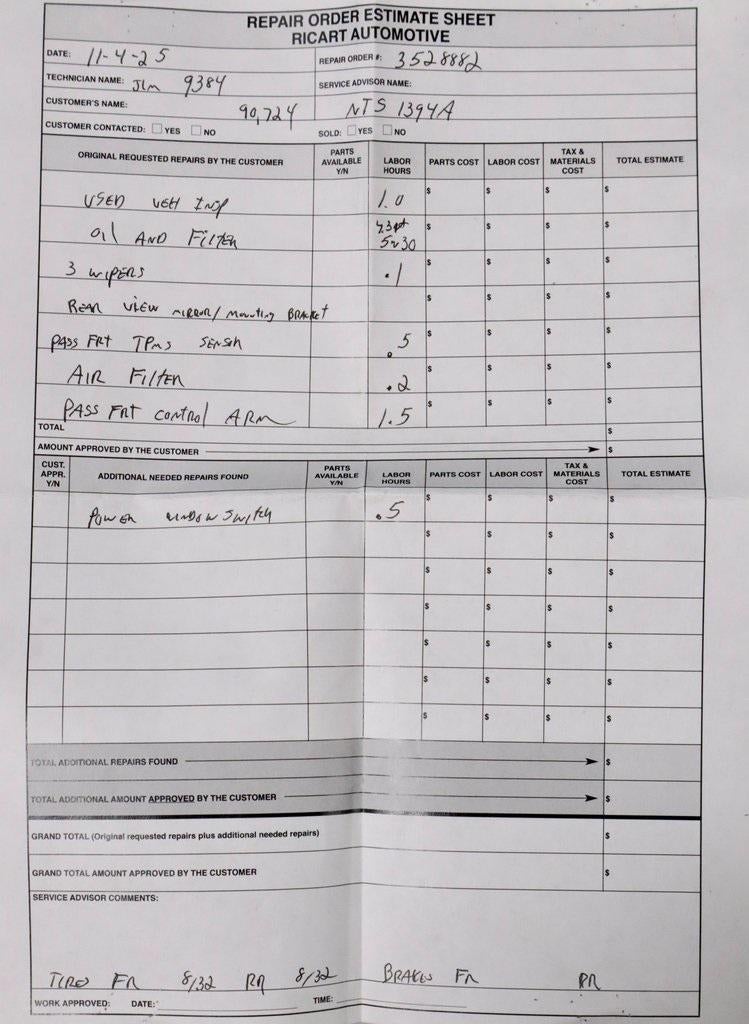 REPAIR ORDER ESTIMATE SHEET
RICART AUTOMOTIVE
DATE: 11-4-25 REPAIR ORDER #: 3528882
TECHNICIAN NAME: Jlm 9384 SERVICE ADVISOR NAME:
CUSTOMER'S NAME: 90,724 NTS 1394A
CUSTOMER CONTACTED: YES NO SOLD: YES NO
ORIGINAL REQUESTED REPAIRS BY THE CUSTOMER PARTS AVAILABLE Y/N LABOR HOURS PARTS COST LABOR COST TAX & MATERIALS COST TOTAL ESTIMATE
USED VEH INSP 1.0 $ $ $ $
OIL AND FILTER 5w30 $ $ $ $
3 WIPERS .1 $ $ $ $
REAR VIEW MIRROR/MOUNTING BRACKET $ $ $ $
PASS FRT TPMS SENSR .5 $ $ $ $
AIR FILTER .2 $ $ $ $
PASS FRT CONTROL ARM 1.5 $ $ $ $
TOTAL $
AMOUNT APPROVED BY THE CUSTOMER $
CUST. APPR. Y/N ADDITIONAL NEEDED REPAIRS FOUND PARTS AVAILABLE Y/N LABOR HOURS PARTS COST LABOR COST TAX & MATERIALS COST TOTAL ESTIMATE
POWER WINDOW SWITCH .5 $ $ $ $
$ $ $ $
$ $ $ $
$ $ $ $
$ $ $ $
$ $ $ $
$ $ $ $
TOTAL ADDITIONAL REPAIRS FOUND $
TOTAL ADDITIONAL AMOUNT APPROVED BY THE CUSTOMER $
GRAND TOTAL (Original requested repairs plus additional needed repairs) $
GRAND TOTAL AMOUNT APPROVED BY THE CUSTOMER $
SERVICE ADVISOR COMMENTS:
TIRES FR 8/32 RR 8/32 BRAKES FR RR
WORK APPROVED: DATE: TIME: